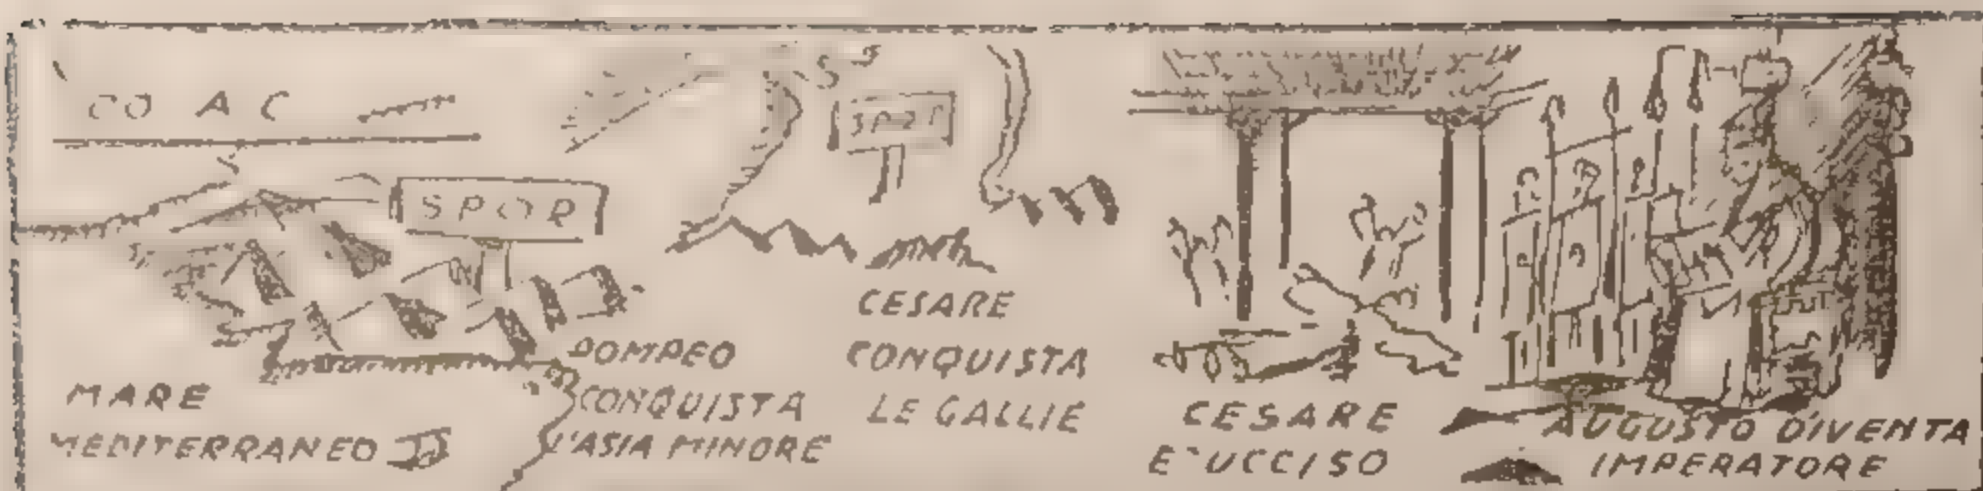 CO AC
SPQR
MARE
MEDITERRANEO
POMPEO
CONQUISTA
L'ASIA MINORE
CESARE
CONQUISTA
LE GALLIE
CESARE
E' UCCISO
AUGUSTO DIVENTA
IMPERATORE